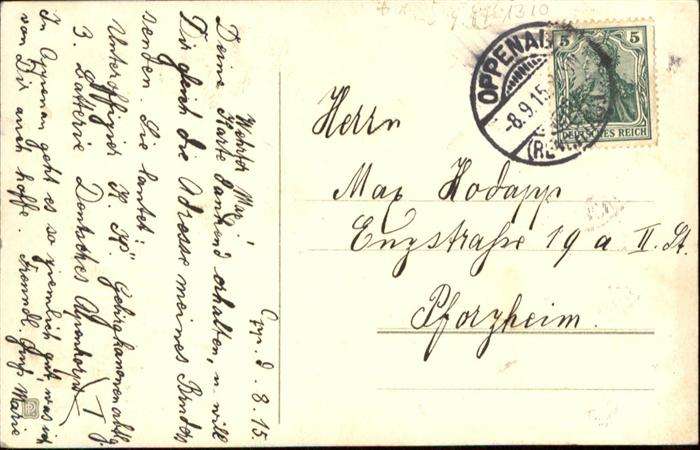 OPPENAU
-8.9.15.
5 5
DEUTSCHES REICH
Herrn
Max Hodapp
Enzstraße 19 a II. St.
Pforzheim.
Opp. d. 8.15
Werter Max!
Deine Karte dankend erhalten, u. will
Dir gleich die Adresse meines Bruders
senden. Sie lautet:
Unteroffizier K. Gebirgskanonenabtlg.
3. Batterie Deutsches Alpenkorps
In Oppenau geht es so ziemlich gut, was ich
von Dir auch hoffe. Freundl. Gruß Marie